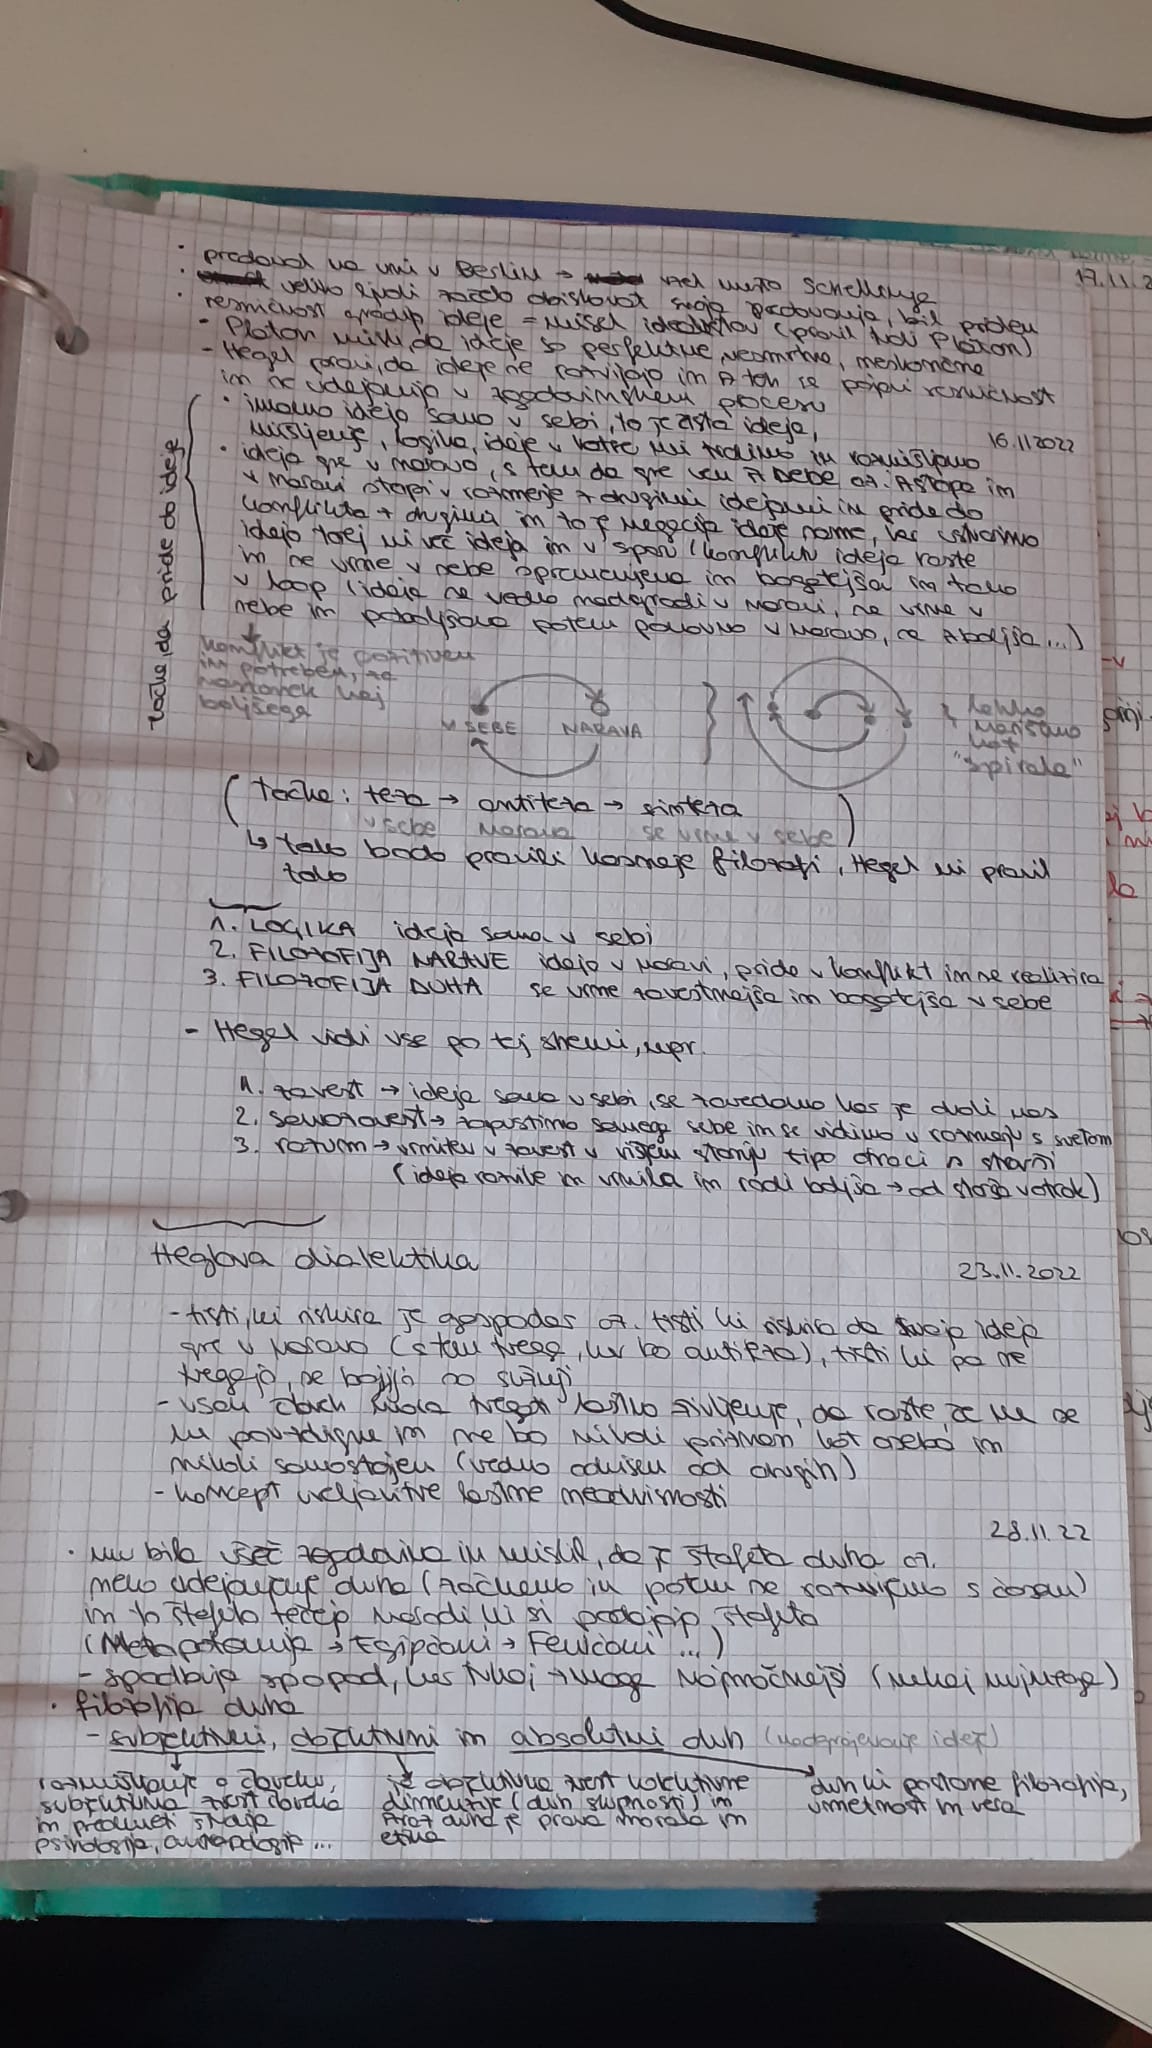 17.11.2
· predaval na uni v Berlinu → vzel mesto Schellinga
· veliko ljudi začelo obiskovat svoja predavanja, bil priden
· resničnost gradijo ideje = misel idealistov (pravi tudi Platon)
- Platon misli, da ideje so perfektne, nesmrtne, neskončne
- Hegel pravi, da ideje se razvijajo in s teh se pojavi resničnost
in se udejanijo v zgodovinskem procesu
· imamo idejo samo v sebi, to je čista ideja,
mišljenje, logika, ideje v katere mi trdimo in razmišljamo
16.11 2022
· ideja gre v naravo, s tem da gre ven iz sebe oz. izstopa in
v naravi stopi v razmerje z drugimi idejami in pride do
konflikta z drugimi in to je negacija ideje same, ker ustvarimo
idejo torej ni več ideja in v sporu (konfliktu ideja raste
in se vrne v sebe opremenjena in bogatejša in tako
v loop (ideja se vedno nadgradi v naravi, se vrne v
sebe in poboljšana potem ponovno v naravo, se izboljša ...)
točke, da pride do ideje
konflikt je pozitiven
in potreben, za
nastanek kaj
boljšega
V SEBE NARAVA
lahko
narišemo
kot
"spirala"
( točke: teza → antiteza → sinteza )
v sebe narava se vrne v sebe
↳ tako bodo pravili kasneje filozofi, Hegel ni pravil
tako
1. LOGIKA ideja sama v sebi
2. FILOZOFIJA NARAVE ideja v naravi, pride v konflikt in se realizira
3. FILOZOFIJA DUHA se vrne zavestnejša in bogatejša v sebe
- Hegel vidi vse po tej shemi, npr.
1. zavest → ideja sama v sebi, se zavedamo kar je okoli nas
2. samozavest → zapustimo samega sebe in se vidimo v razmerju s svetom
3. razum → vrnitev v zavest v višjem stanju tipo otroci in starši
(ideja razvile in vrnila in rodi boljša → od starša v otrok)
Heglova dialektika
23.11.2022
- tisti, ki riskira je gospodar oz. tisti ki riskira da svoja ideja
gre v naravo (s tem tvega, ker bo antiteza), tisti ki pa ne
tvegajo, se bojijo so sužnji
- vsak človek mora tvegati lastno življenje, da raste če ne se
ne povzdigne in ne bo nikoli priznan kot oseba in
nikoli samostojen (vedno odvisen od drugih)
- koncept uveljavitve lastne neodvisnosti
28.11.22
· mu bila všeč zgodovina in mislil, da je štafeta duha oz.
neko udejanjanje duha (začnemo in potem se razvijemo s časom)
in to štafeto tečejo narodi ki si podajajo štafeto
(Metapotamija → Egipčani → Feničani ...)
- spodbuja spopad, ker tukaj zmaga najmočnejši (nekaj nujnega)
· filozofija duha
- subjektivni, objektivni in absolutni duh (nadgrajevanje idej)
razmišljanje o človeku,
subjektivna zvest človeka
in predmeti štajo
psihologija, antropologija ...
je objektivna zvest kolektivne
dimenzije (duh skupnosti) in
izraz duha je pravo morala in
etika
duh ki postane filozofija,
umetnost in vera